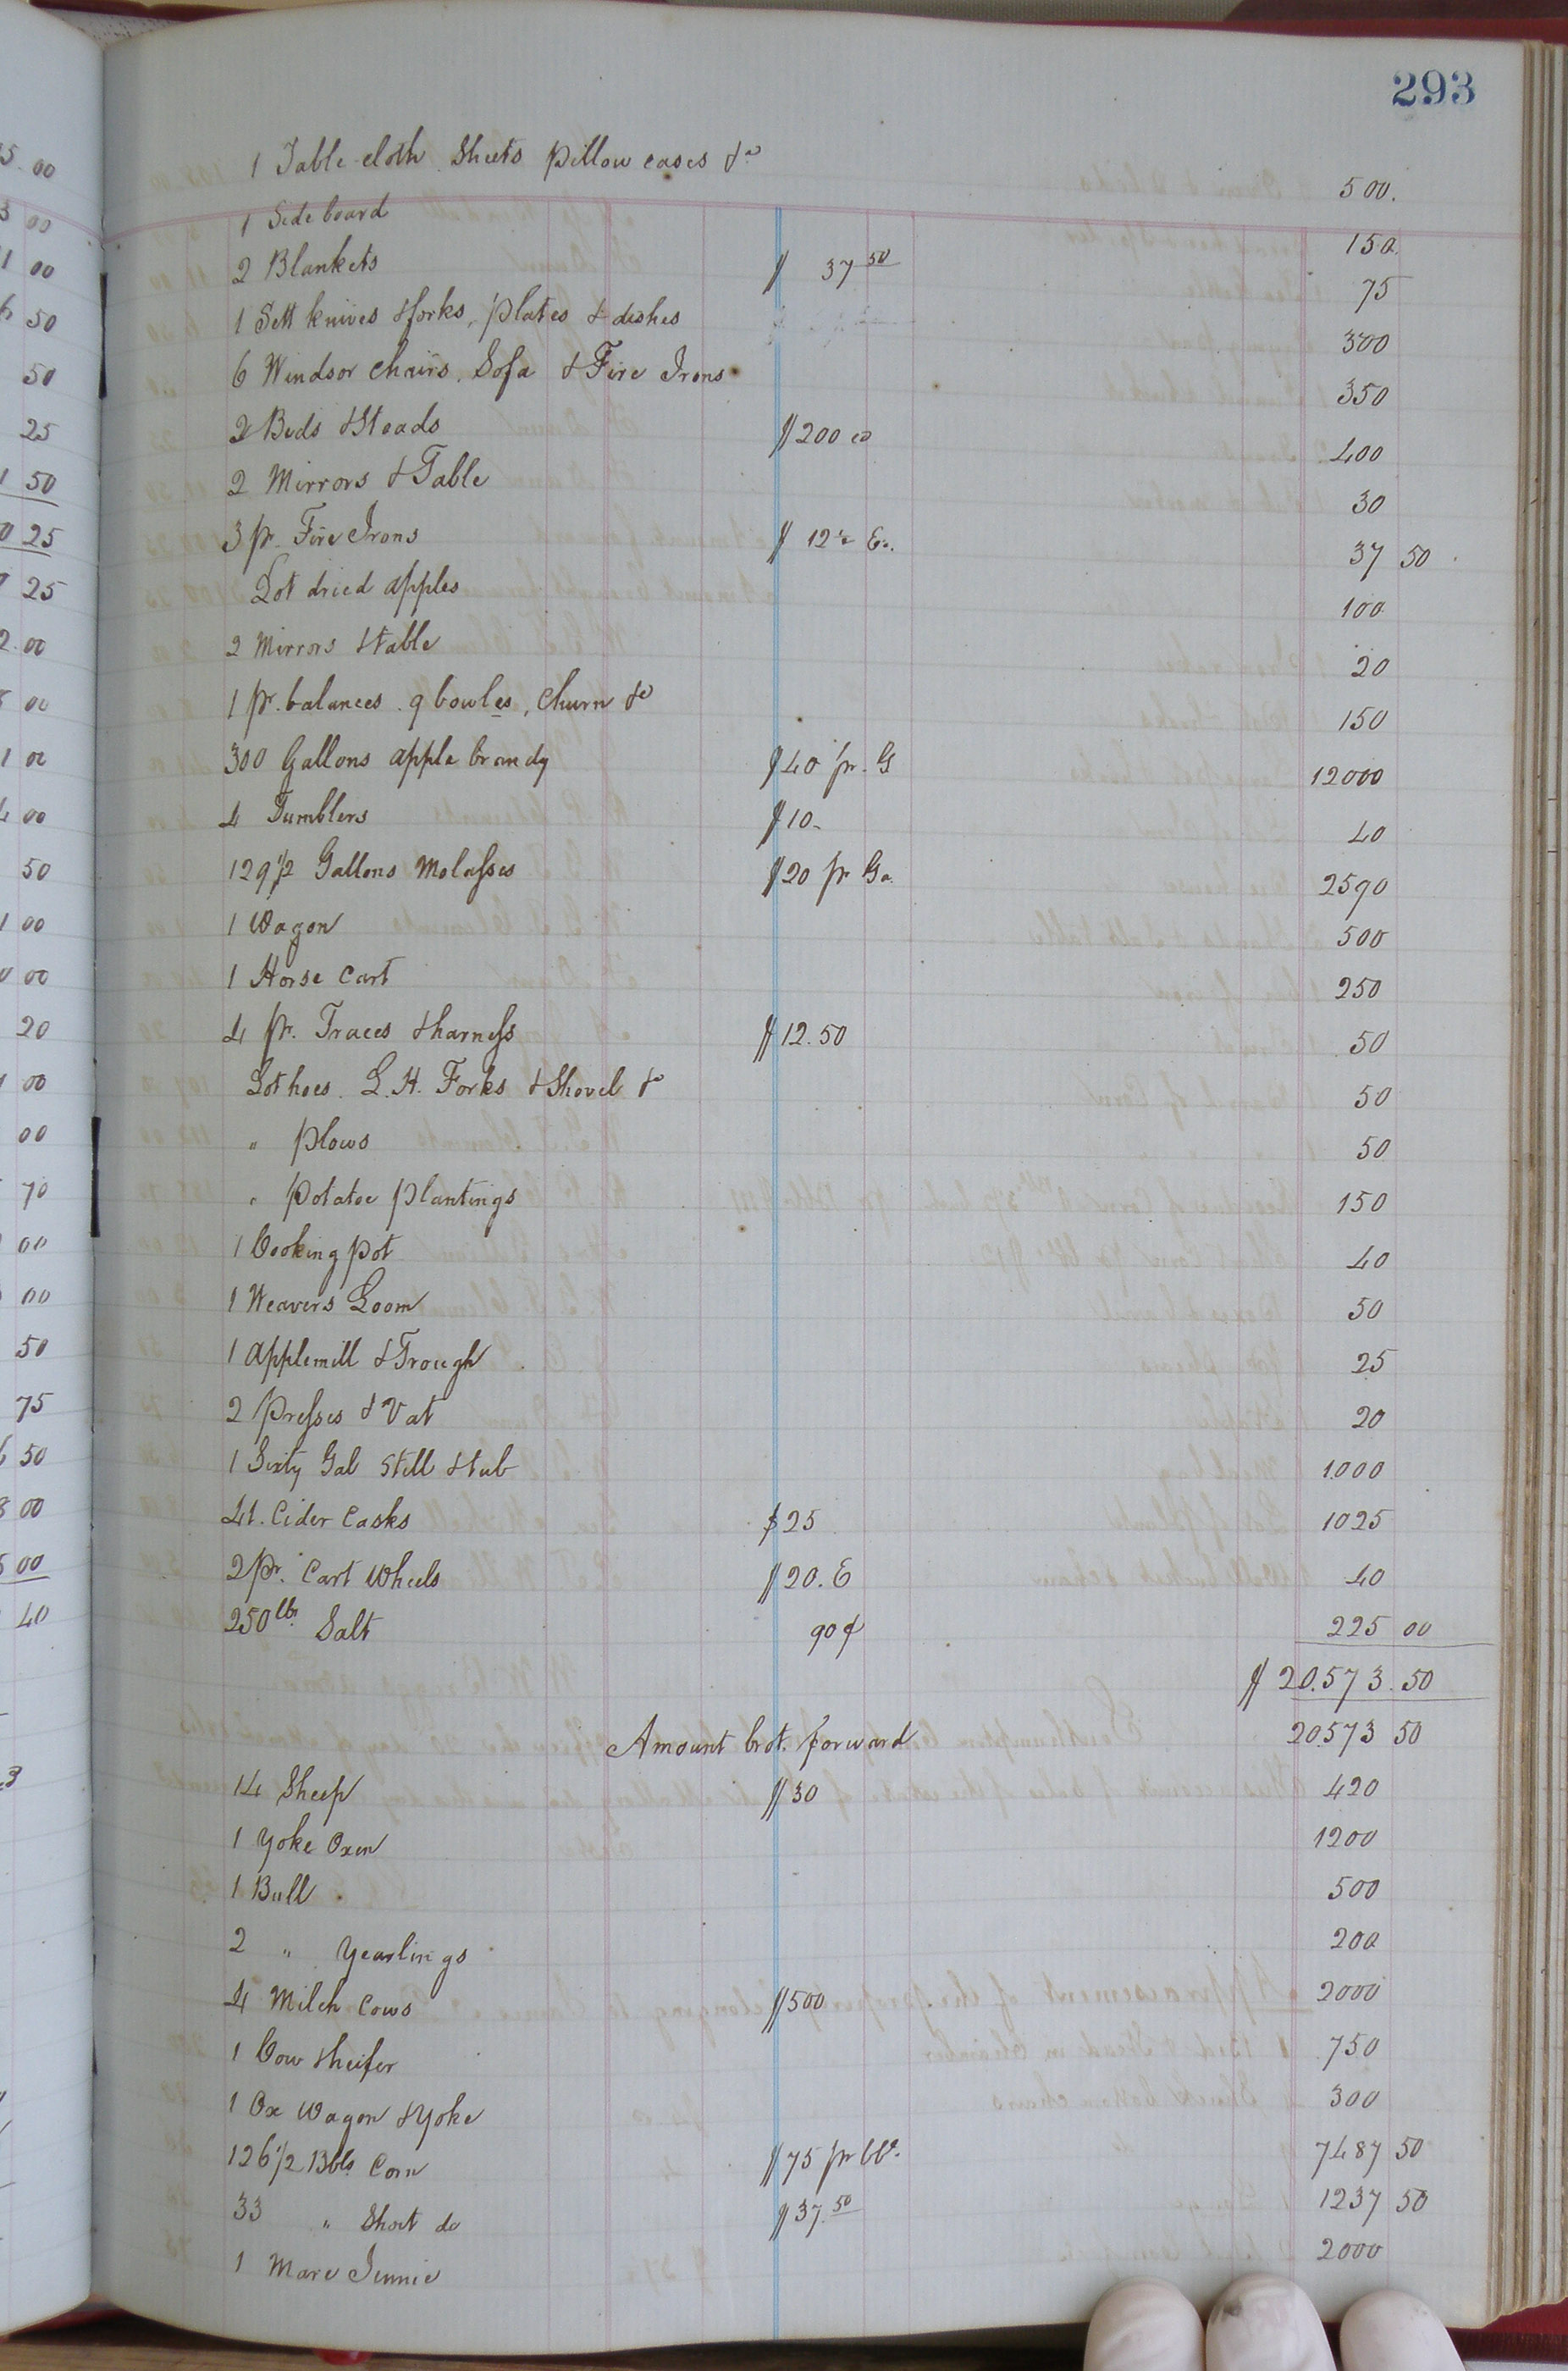 293
1 Table cloth Sheets pillow cases &c 500.
1 Side board 150.
2 Blankets $ 37 50 75
1 Sett knives & forks, plates & dishes 300
6 Windsor chairs, Sofa & Fire Irons 350
2 Beds & Steads $200 00 400
2 Mirrors & Table 30
3 pr. Fire Irons $ 12 1/2 Ea. 37 50
Lot dried apples 100
2 Mirrors & table 20
1 pr. balances. 9 bowles, Churn &c 150
300 Gallons apple brandy $40 pr. G 12000
4 Tumblers $10- 40
129 1/2 Gallons Molasses $20 pr Ga. 2590
1 Wagon 500
1 Horse Cart 250
4 pr. Traces & harness $12.50 50
Lot hoes. L. H. Forks & Shovel &c 50
" plows 50
" Potatoe plantings 150
1 Cooking pot 40
1 Weavers Loom 50
1 Applemill & Trough 25
2 Presses & Vat 20
1 Sixty Gal Still & tub 1000
41. Cider Casks $25 1025
2 pr. Cart Wheels $20. E 40
250 lbs. Salt 90¢ 225 00
$ 20.573.50
Amount brot. forward 20573 50
14 Sheep $30 420
1 yoke Oxen 1200
1 Bull 500
2 " Yearlings 200
4 Milch Cows $500 2000
1 Cow & heifer 750
1 Ox Wagon & yoke 300
126 1/2 Bbls Corn $75 pr bbl. 7487 50
33 " Short do $37.50 1237 50
1 Mare Jennie 2000